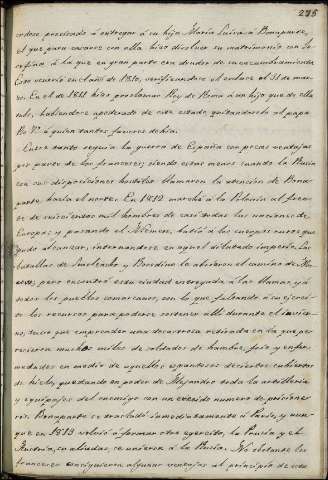 275
precisado á entregar á su hija Maria Luisa á Bonaparte,
el que para casarse con ella hizo disolver su matrimonio con Jo-
sefina á la que en gran parte era deudor de su encumbramiento
Esto ocurrió en el año de 1810, verificandose el enlace el 31 de mar-
zo. En el de 1811 hizo proclamar Rey de Roma á un hijo que de ella
tubo, habiendose apoderado de este estado, quitandoselo al papa
Pio VII á quien tantos favores debia.
Entre tanto seguia la guerra de España con pocas ventajas
por parte de los franceses; siendo estas menos cuando la Rusia
con sus disposiciones hostiles llamaron la atencion de Bona-
parte, hacia el norte. En 1812 marchó á la Polonia al frente
de seiscientos mil hombres de casi todas las naciones de
Europa; y pasando el Niemen, batió á los cuerpos rusos que
pudo alcanzar, internandose en aquel dilatado imperio. Las
batallas de Smolensko y Borodino le abrieron el camino de Mos-
cow, pero encontró esta ciudad entregada á las llamas, y á
todos los pueblos comarcanos, con lo que faltando á su ejerci-
to los recursos para poderse sostener alli durante el invier-
no, tuvo que emprender una desastrosa retirada en la que pe-
recieron muchos miles de soldados de hambre, frio y enfer-
medades en medio de aquellos espantosos desiertos cubiertos
de hielo, quedando en poder de Alejandro toda la artilleria
y equipajes del enemigo con un crecido numero de prisione-
ros. Bonaparte se trasladó inmediatamente á Paris, y aun-
que en 1813 volvió á formar otro ejercito, la Prusia y el
Austria, sus aliadas, se unieron á la Rusia. No obstante los
franceses consiguieron algunas ventajas al principio de esta